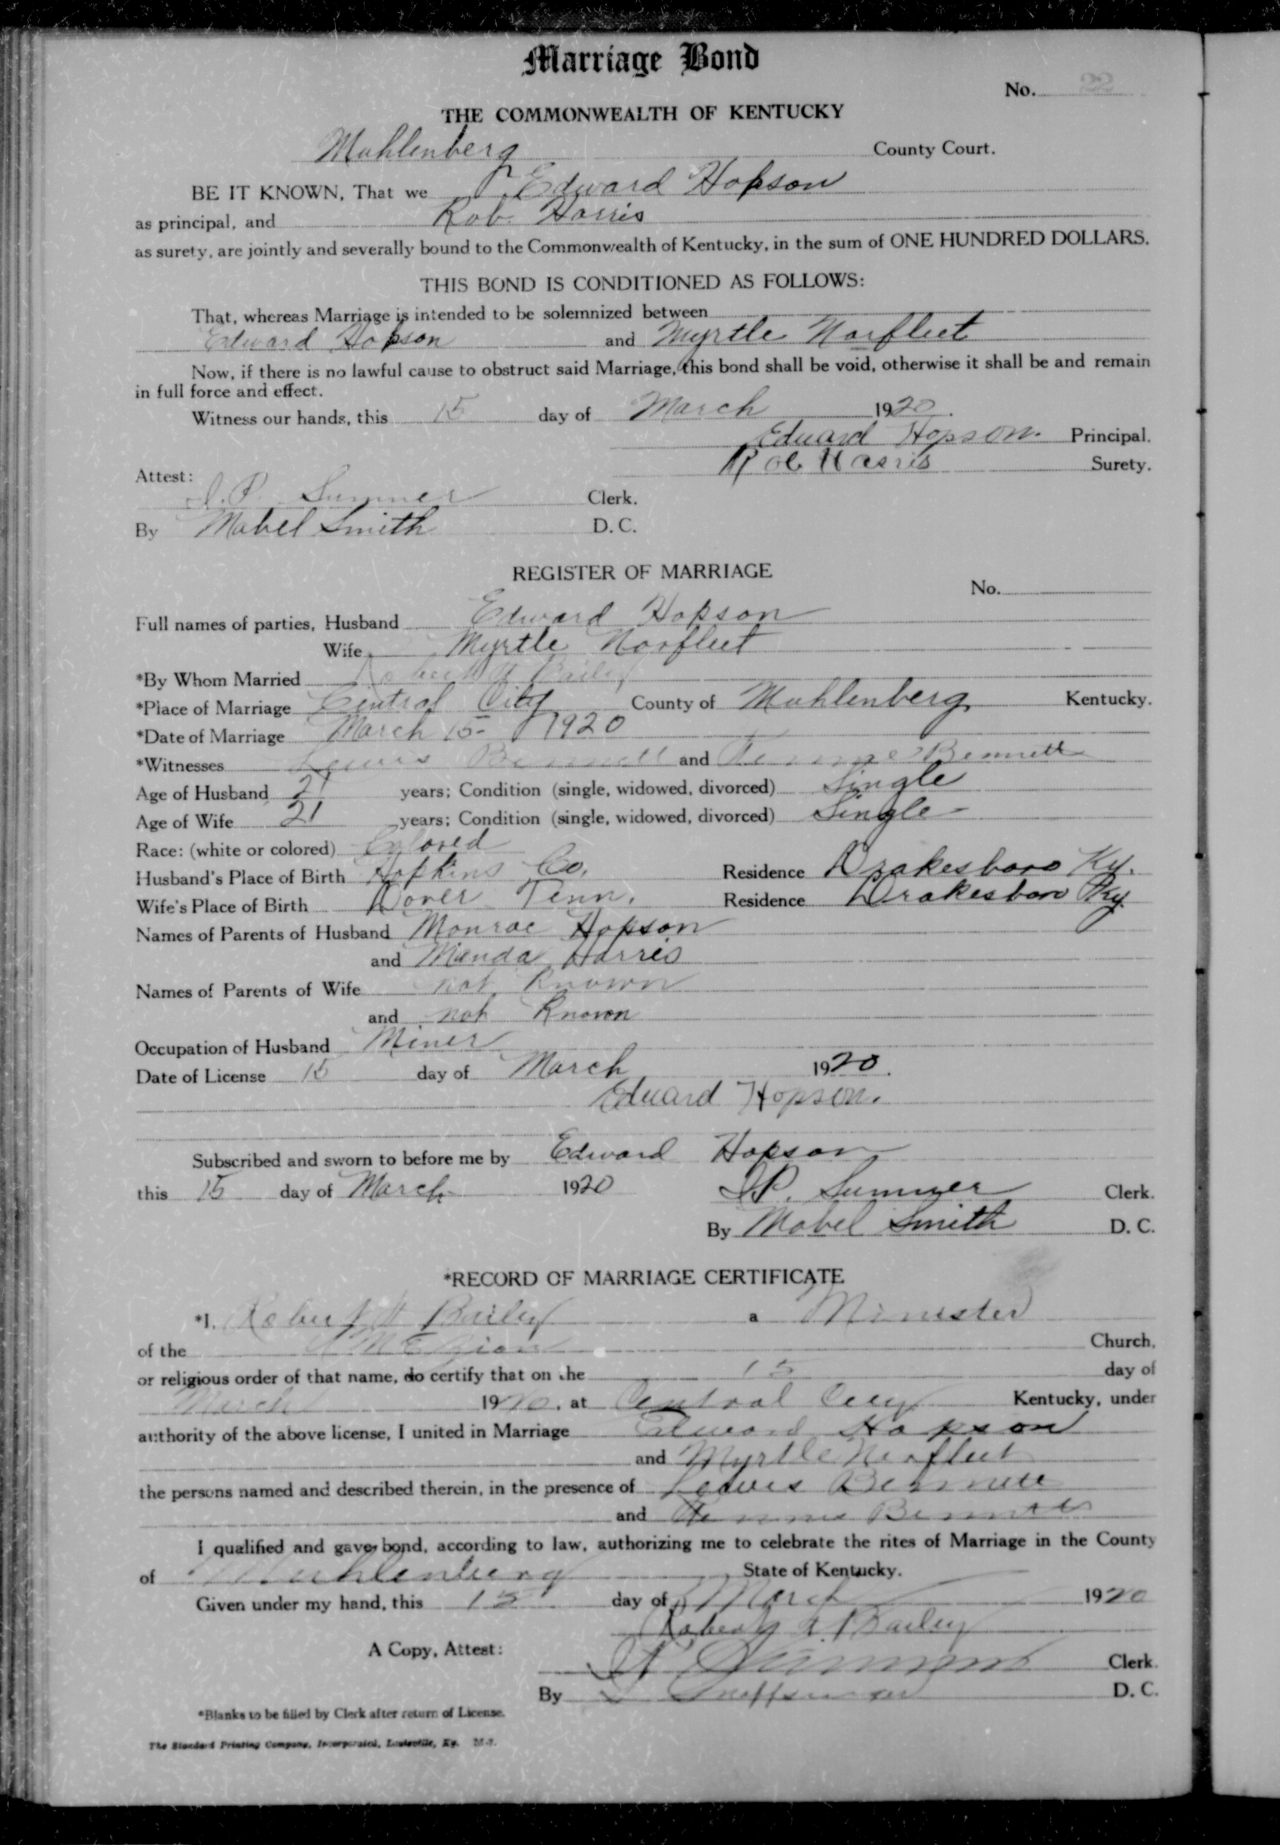 Marriage Bond
No. 22
THE COMMONWEALTH OF KENTUCKY
Muhlenberg County Court.
BE IT KNOWN, That we Edward Hopson
as principal, and Rob. Harris
as surety, are jointly and severally bound to the Commonwealth of Kentucky, in the sum of ONE HUNDRED DOLLARS.
THIS BOND IS CONDITIONED AS FOLLOWS:
That, whereas Marriage is intended to be solemnized between
Edward Hopson and Myrtle Norfleet
Now, if there is no lawful cause to obstruct said Marriage, this bond shall be void, otherwise it shall be and remain
in full force and effect.
Witness our hands, this 15 day of March 1920.
Eduard Hopson. Principal.
Rob Harris Surety.
Attest:
J. P. Summer Clerk.
By Mabel Smith D. C.
REGISTER OF MARRIAGE
No.
Full names of parties, Husband Edward Hopson
Wife Myrtle Norfleet
*By Whom Married Robert A Bailey
*Place of Marriage Central City County of Muhlenberg Kentucky.
*Date of Marriage March 15- 1920
*Witnesses Lewis Bennett and Bennett
Age of Husband 21 years; Condition (single, widowed, divorced) Single
Age of Wife 21 years; Condition (single, widowed, divorced) Single
Race: (white or colored) Colored
Husband's Place of Birth Hopkins Co. Residence Drakesboro Ky.
Wife's Place of Birth Dover Tenn. Residence Drakesboro Ky.
Names of Parents of Husband Monroe Hopson
and Manda Harris
Names of Parents of Wife not Known
and not Known
Occupation of Husband Miner
Date of License 15 day of March 1920.
Eduard Hopson.
Subscribed and sworn to before me by Edward Hopson
this 15 day of March 1920 J.P. Summer Clerk.
By Mabel Smith D. C.
*RECORD OF MARRIAGE CERTIFICATE
*I, Robert A Bailey a Minister
of the A M E Zion Church,
or religious order of that name, do certify that on the 15 day of
March 1920, at Central City Kentucky, under
authority of the above license, I united in Marriage Edward Hopson
and Myrtle Norfleet
the persons named and described therein, in the presence of Lewis Bennett
and Bennett
I qualified and gave bond, according to law, authorizing me to celebrate the rites of Marriage in the County
of Muhlenberg State of Kentucky.
Given under my hand, this 15 day of March 1920
Robert A. Bailey
A Copy, Attest:
Clerk.
By D. C.
*Blanks to be filled by Clerk after return of License.
The Standard Printing Company, Incorporated, Louisville, Ky.